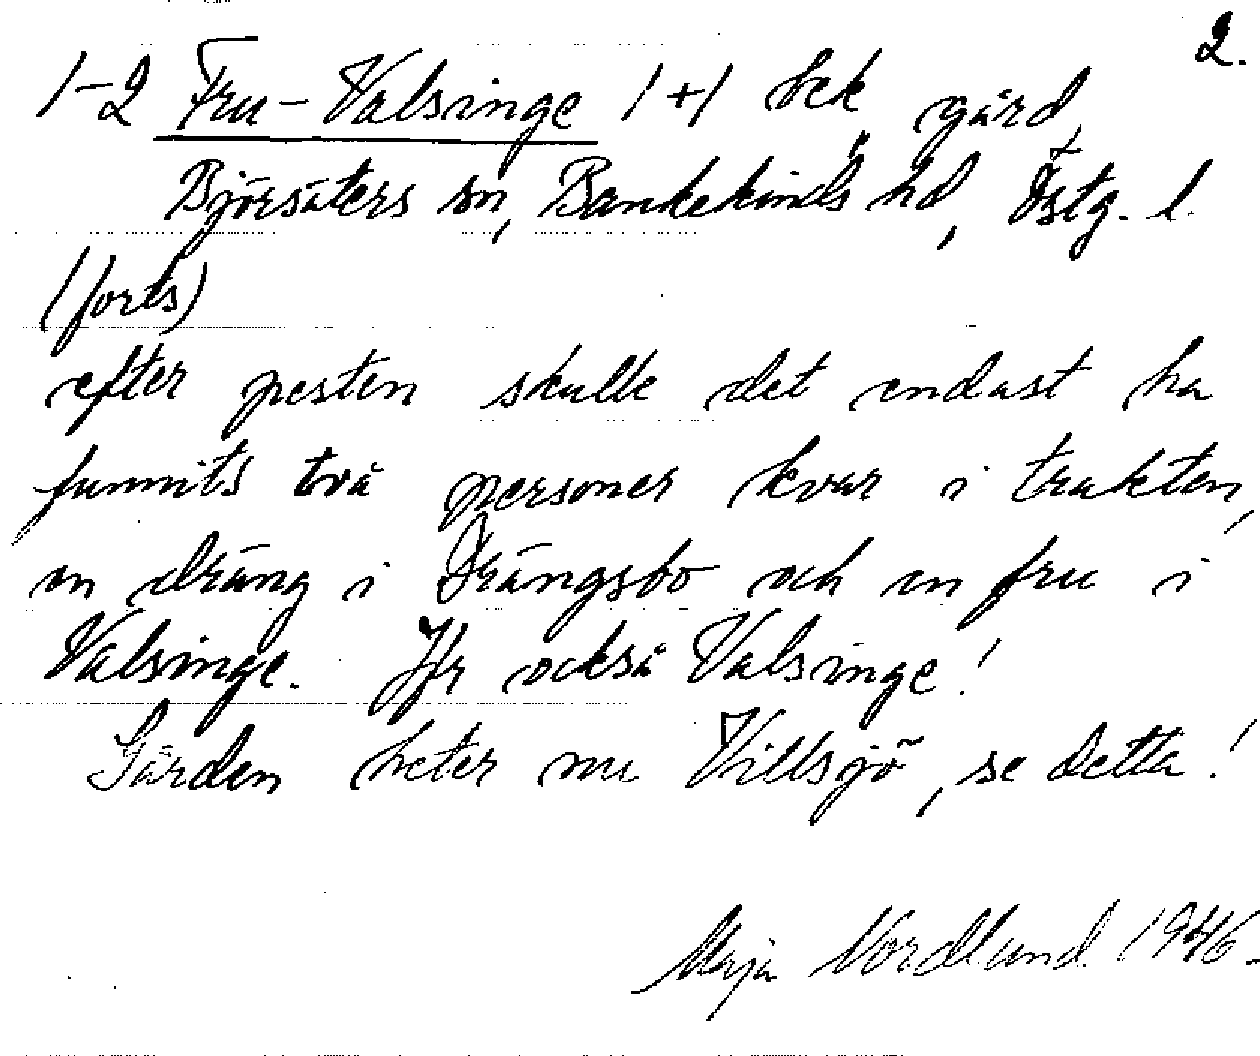 2.
1-2 Fru-Valsinge 1+1 sek gård,
Björsäters sn, Bankekinds hd, Östg. l.
(forts)
efter pesten skulle det endast ha
funnits två personer kvar i trakten,
en dräng i Drängsbo och en fru i
Valsinge. Jfr också Valsinge!
Gården heter nu Villsjö, se detta!
Maja Nordlund 1946.